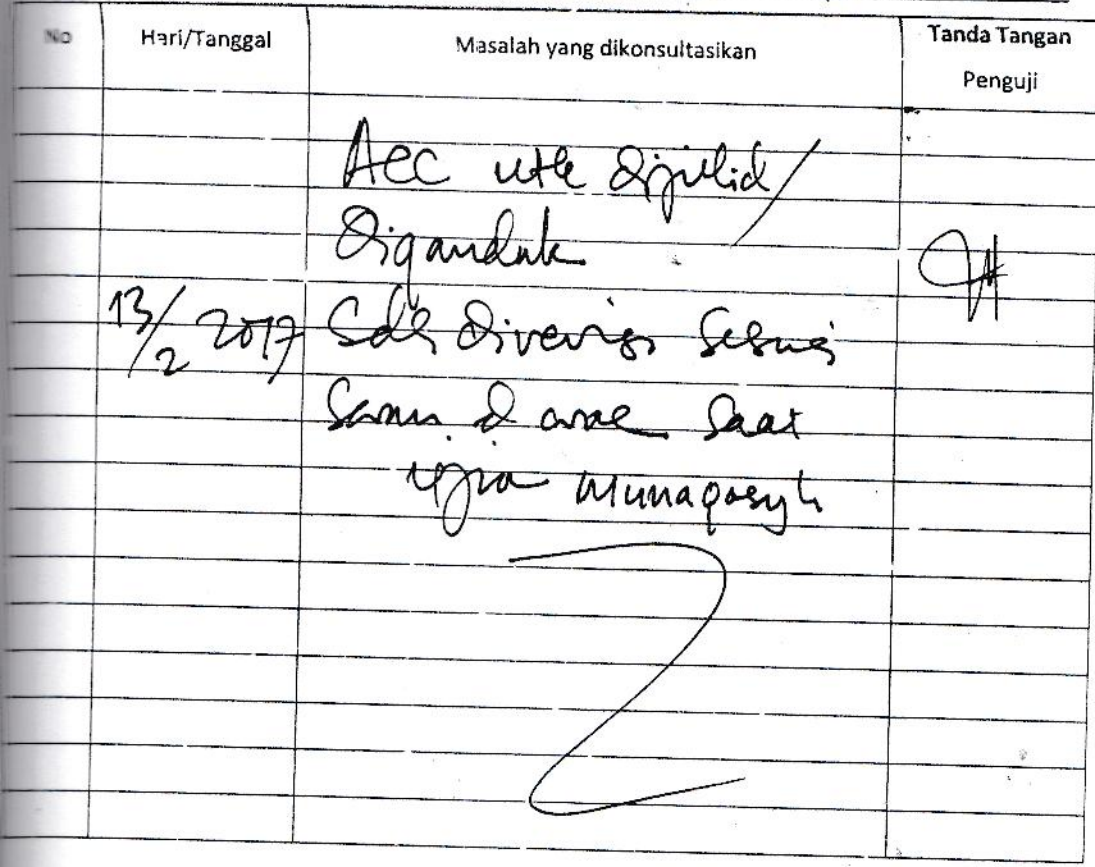 No Hari/Tanggal Masalah yang dikonsultasikan Tanda Tangan
Penguji
Acc utk dijilid/
Digandak
13/2 2017 Sdh direvisi sesuai
Saran saat
ujian Munaqosyh